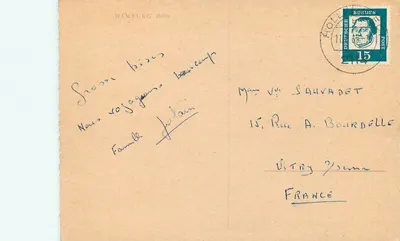 Grosses bises
Nous voyageons beaucoup
Famille
HOL
DEUTSCHE BUNDESPOST
15
Mme Vve SAUVADET
15, Rue A. BOURDELLE
VITRY s/Seine
FRANCE